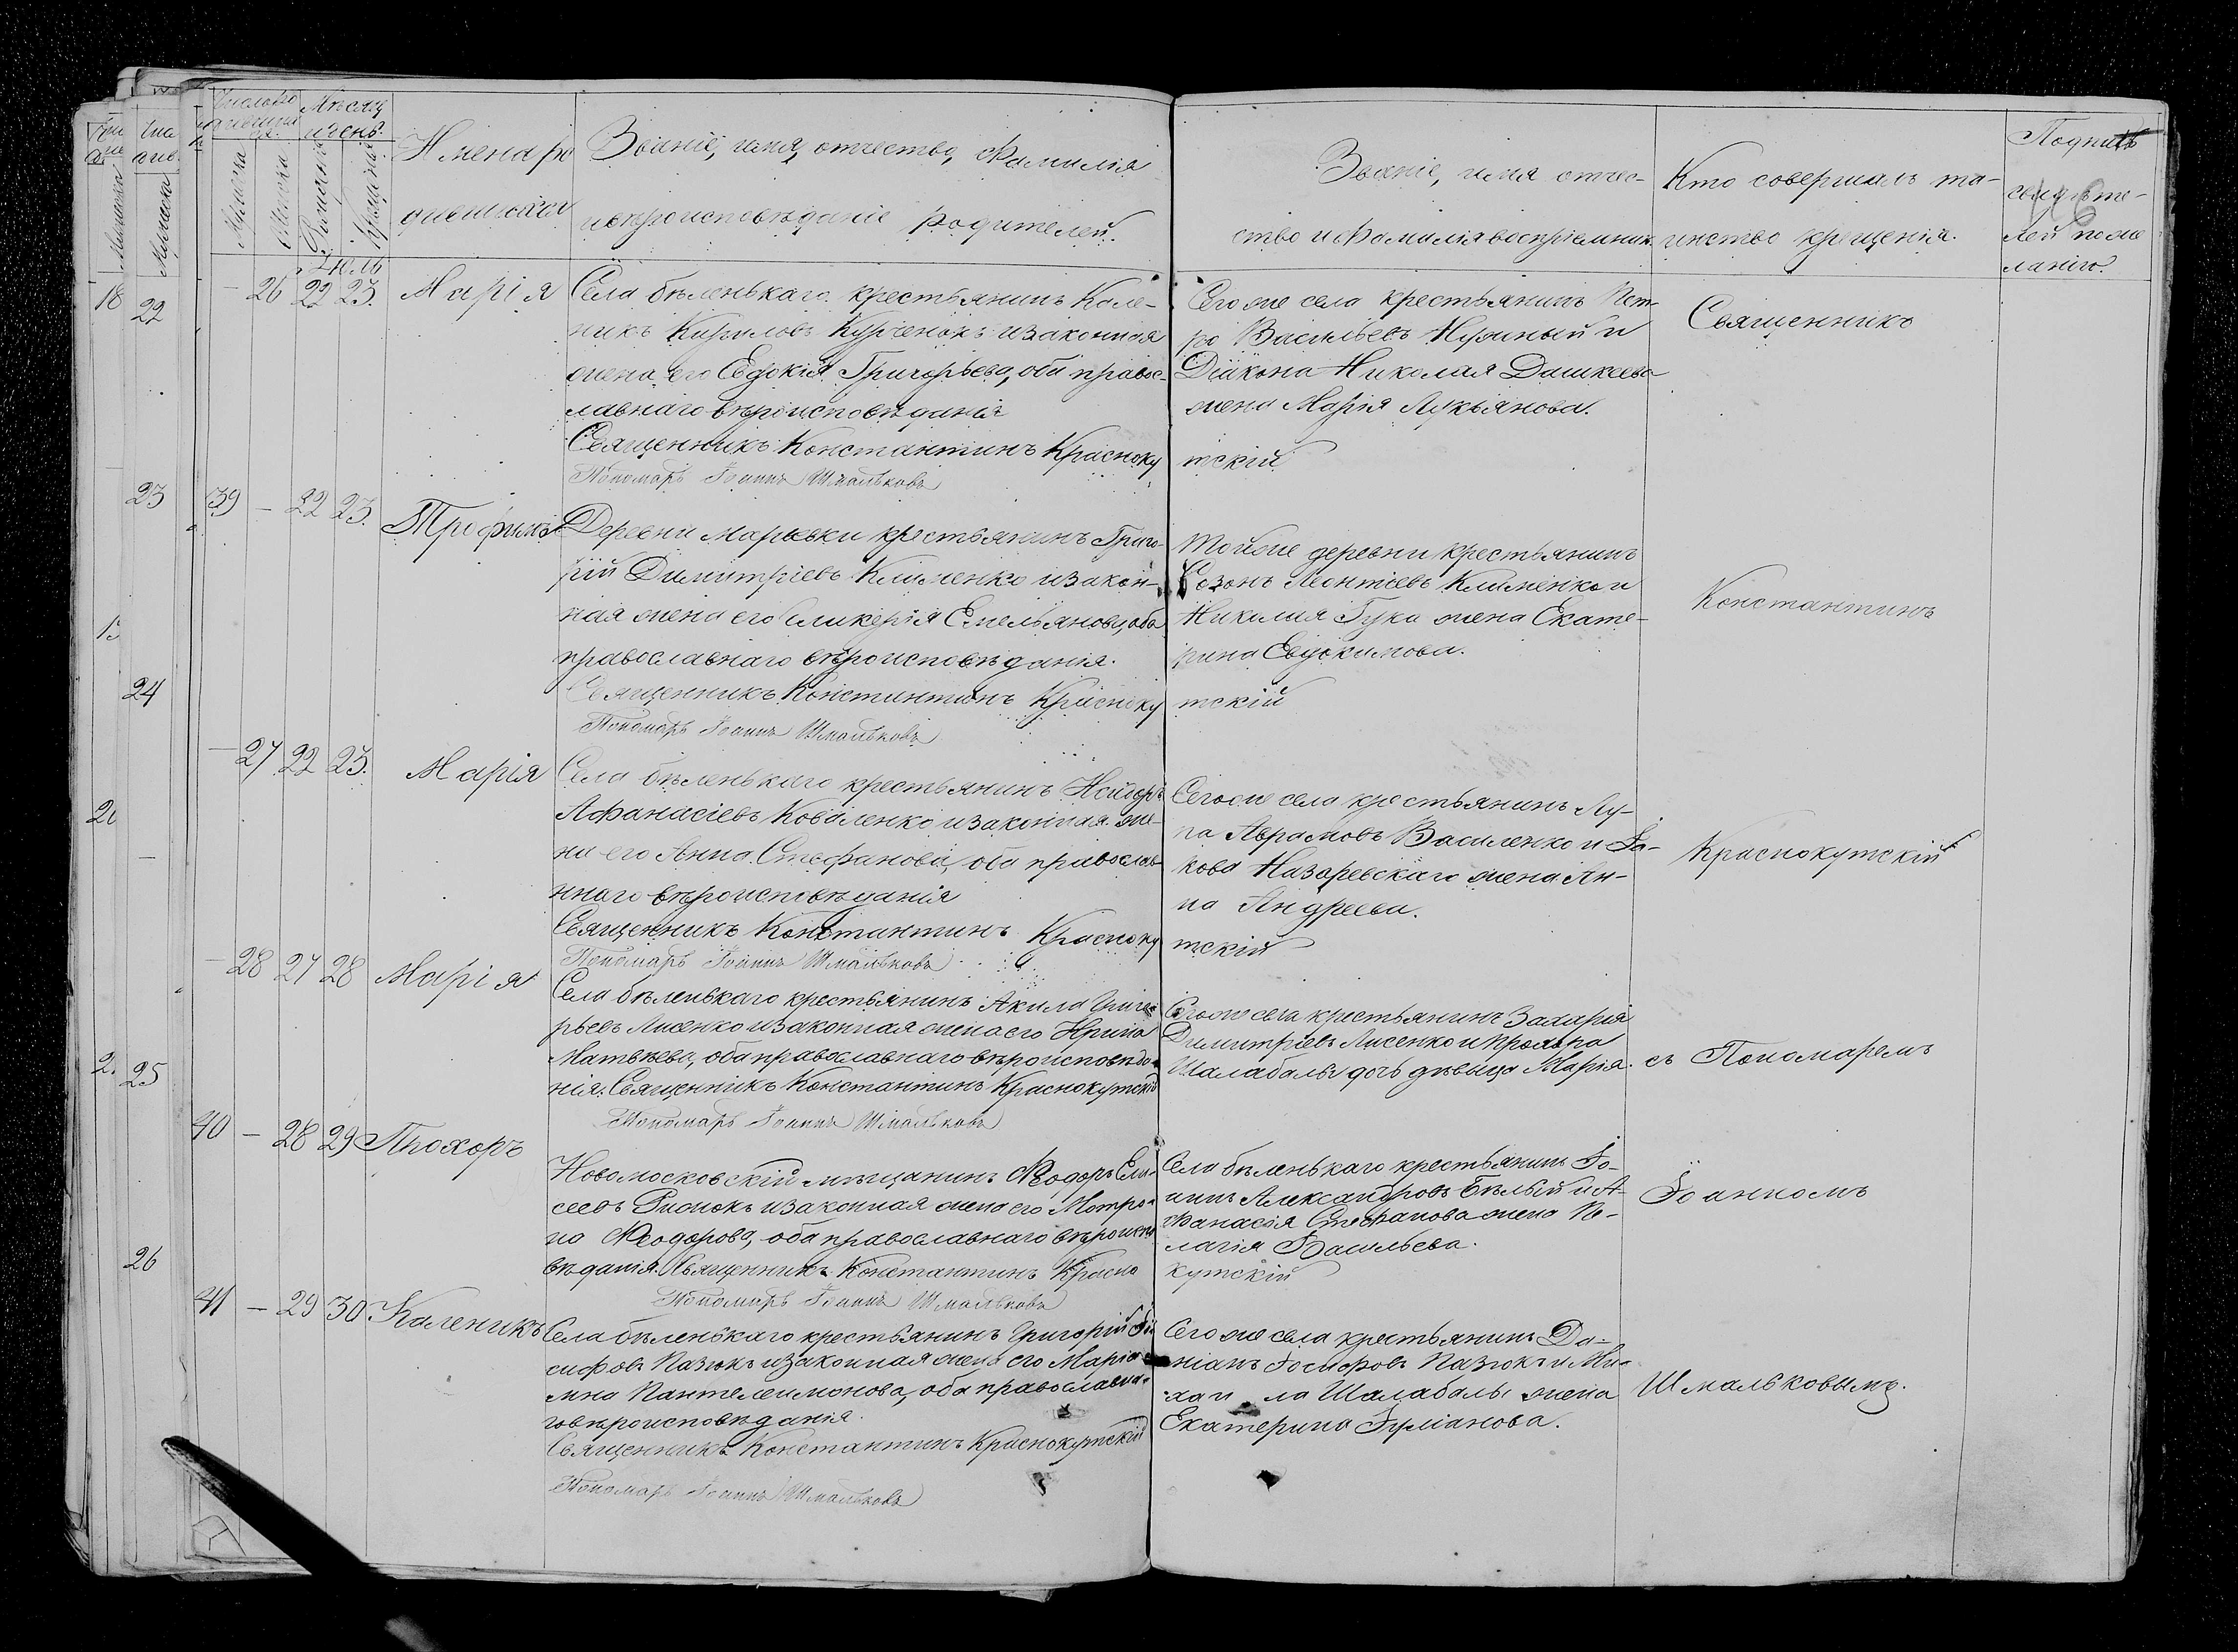 Число ро
дившихся
Мѣсяц
и день.
Мужеска
Женска
Рожденія
Крещенія
Имена ро
дившихся
Званіе, имя, отчество, Фамилія
и вѣроисповѣданіе родителей.
Званіе, имя отчес-
тво и Фамилія воспріемник.
Кто совершалъ та-
инство крещенія.
Подпись
свидѣте-
лей по же
ланію.
18 22
Іюль
26 22 23. Марія
Села бѣленькаго крестьянинъ Кале-
никъ Кириловъ Курченокъ и законная
жена его Евдокія Григорьева, оба правос-
лавнаго вѣроисповѣданія
Священникъ Константинъ Красноку
тскій
Пономарь Іоаннъ Шмальковъ
Сегоже села крестьянинъ Пет-
ро Васильевъ Нужный и
Діякона Николая Дашкеева
жена Марія Лукьянова.
Священникъ
23
39 – 22 23. Трофимъ
Деревни Марьевки крестьянинъ Григо-
рій Димитріевъ Клименко и закон-
ная жена его Гликерія Емельянова, оба
православнаго вѣроисповѣданія.
Священникъ Константинъ Красноку
тскій
Пономарь Іоаннъ Шмальковъ
Тойже деревни крестьянинъ
Созонъ Леонтіевъ Клименко и
Николая Гука жена Екате-
рина Евдокимова.
Константинъ
24
– 27 22 23. Марія
Села бѣленькаго крестьянинъ
Афанасіевъ Коваленко и законная же-
на его Анна Стефанова, оба православ-
ннаго вѣроисповѣданія
Священникъ Константинъ Красноку
тскій
Пономарь Іоаннъ Шмальковъ
Сегоже села крестьянинъ Лу-
ка Аврамовъ Василенко и Іа-
кова Назаревскаго жена Ан-
на Андреева.
Краснокутскій
– 28 27 28 Марія
Села бѣленькаго крестьянинъ Акила Григо
рьевъ Лисенко и законная жена его Ирина
Матвѣева, оба православнаго вѣроисповѣда-
нія: Священникъ Константинъ Краснокутскій
Пономарь Іоаннъ Шмальковъ
Сегоже села крестьянинъ Захарія
Димитріевъ Лисенко и
Шалабалы дочь дѣвица Марія.
съ Пономаремъ
25
40 – 28 29 Прохоръ
Новомосковскій мѣщанинъ Ѳеодоръ Ели-
сеевъ и законная жена его Матро-
на Ѳеодорова, оба православнаго вѣроиспо
вѣданія. Священникъ Константинъ Красно
кутскій
Пономарь Іоаннъ Шмальковъ
Села бѣленькаго крестьянинъ Іо-
аннъ Александровъ Бѣлый и А-
фанасія Стефанова жена Пе-
лагія Васильева.
Іоанномъ
26
41 – 29 30 Каленикъ
Села бѣленькаго крестьянинъ Григорій Іо
сифовъ Пазюкъ и законная жена его Маріа
мна Пантелеимонова, оба православна-
го вѣроисповѣданія.
Священникъ Константинъ Краснокутскій
Пономарь Іоаннъ Шмальковъ
Сегоже села крестьянинъ Да-
міанъ Іосифовъ Пазюкъ и Ми-
хаи ла Шалабалы жена
Екатерина
Шмальковымъ.